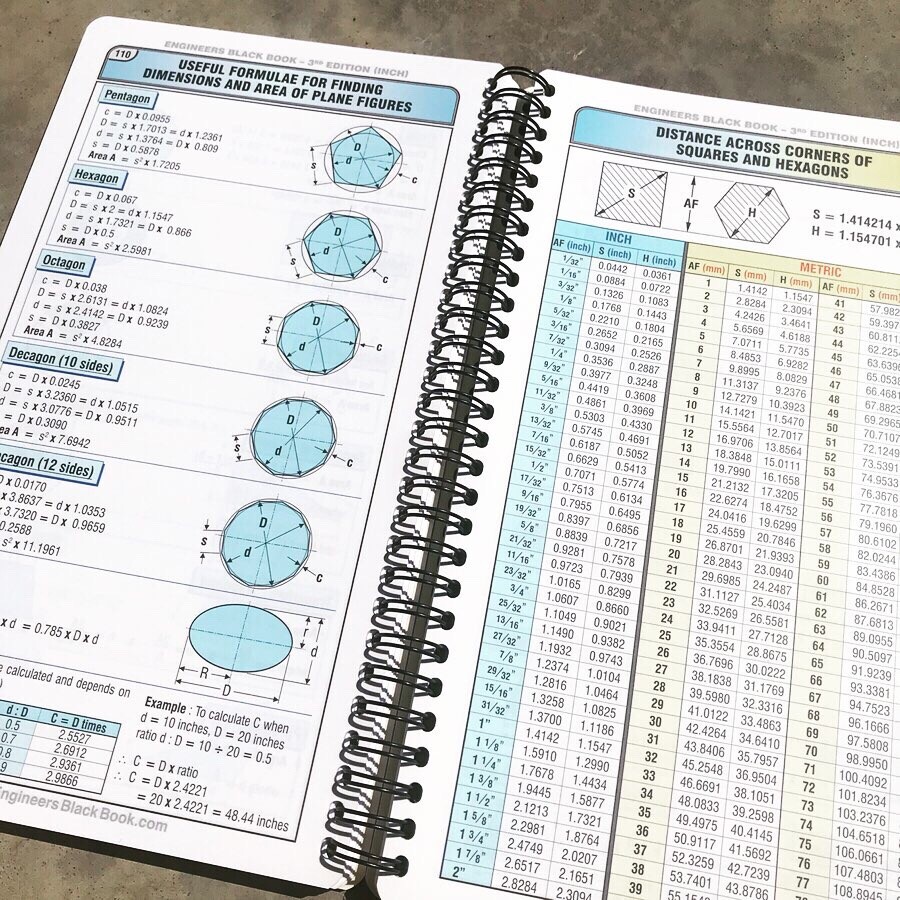 ENGINEERS BLACK BOOK – 3RD EDITION (INCH)
110
USEFUL FORMULAE FOR FINDING
DIMENSIONS AND AREA OF PLANE FIGURES
Pentagon
c = D x 0.0955
D = s x 1.7013 = d x 1.2361
d = s x 1.3764 = D x 0.809
s = D x 0.5878
Area A = s² x 1.7205
D
d
s
c
Hexagon
c = D x 0.067
D = s x 2 = d x 1.1547
d = s x 1.7321 = D x 0.866
s = D x 0.5
Area A = s² x 2.5981
D
d
s
c
Octagon
c = D x 0.038
D = s x 2.6131 = d x 1.0824
d = s x 2.4142 = D x 0.9239
s = D x 0.3827
Area A = s² x 4.8284
D
d
s
c
Decagon (10 sides)
c = D x 0.0245
D = s x 3.2360 = d x 1.0515
d = s x 3.0776 = D x 0.9511
= D x 0.3090
ea A = s² x 7.6942
D
d
s
c
cagon (12 sides)
D x 0.0170
x 3.8637 = d x 1.0353
x 3.7320 = D x 0.9659
0.2588
s² x 11.1961
D
d
s
c
x d = 0.785 x D x d
r
d
R
D
e calculated and depends on
Example : To calculate C when
d = 10 inches, D = 20 inches
ratio d : D = 10 ÷ 20 = 0.5
∴ C = D x ratio
∴ C = D x 2.4221
= 20 x 2.4221 = 48.44 inches
d : D C = D times
0.5 2.5527
0.7 2.6912
0.8 2.9361
9 2.9866
EngineersBlackBook.com
ENGINEERS BLACK BOOK – 3RD EDITION (INCH)
DISTANCE ACROSS CORNERS OF
SQUARES AND HEXAGONS
S
AF
H
S = 1.414214 x
H = 1.154701 x
INCH
AF (inch) S (inch) H (inch)
1/32" 0.0442 0.0361
1/16" 0.0884 0.0722
3/32" 0.1326 0.1083
1/8" 0.1768 0.1443
5/32" 0.2210 0.1804
3/16" 0.2652 0.2165
7/32" 0.3094 0.2526
1/4" 0.3536 0.2887
9/32" 0.3977 0.3248
5/16" 0.4419 0.3608
11/32" 0.4861 0.3969
3/8" 0.5303 0.4330
13/32" 0.5745 0.4691
7/16" 0.6187 0.5052
15/32" 0.6629 0.5413
1/2" 0.7071 0.5774
17/32" 0.7513 0.6134
9/16" 0.7955 0.6495
19/32" 0.8397 0.6856
5/8" 0.8839 0.7217
21/32" 0.9281 0.7578
11/16" 0.9723 0.7939
23/32" 1.0165 0.8299
3/4" 1.0607 0.8660
25/32" 1.1049 0.9021
13/16" 1.1490 0.9382
27/32" 1.1932 0.9743
7/8" 1.2374 1.0104
29/32" 1.2816 1.0464
15/16" 1.3258 1.0825
31/32" 1.3700 1.1186
1" 1.4142 1.1547
1 1/8" 1.5910 1.2990
1 1/4" 1.7678 1.4434
1 3/8" 1.9445 1.5877
1 1/2" 2.1213 1.7321
1 5/8" 2.2981 1.8764
1 3/4" 2.4749 2.0207
1 7/8" 2.6517 2.1651
2" 2.8284 2.3094
METRIC
AF (mm) S (mm) H (mm) AF (mm) S (mm)
1 1.4142 1.1547 41 57.982
2 2.8284 2.3094 42 59.397
3 4.2426 3.4641 43 60.811
4 5.6569 4.6188 44 62.225
5 7.0711 5.7735 45 63.639
6 8.4853 6.9282 46 65.053
7 9.8995 8.0829 47 66.468
8 11.3137 9.2376 48 67.882
9 12.7279 10.3923 49 69.296
10 14.1421 11.5470 50 70.7107
11 15.5564 12.7017 51 72.1249
12 16.9706 13.8564 52 73.5391
13 18.3848 15.0111 53 74.9533
14 19.7990 16.1658 54 76.3676
15 21.2132 17.3205 55 77.7818
16 22.6274 18.4752 56 79.1960
17 24.0416 19.6299 57 80.6102
18 25.4559 20.7846 58 82.0244
19 26.8701 21.9393 59 83.4386
20 28.2843 23.0940 60 84.8528
21 29.6985 24.2487 61 86.2671
22 31.1127 25.4034 62 87.6813
23 32.5269 26.5581 63 89.0955
24 33.9411 27.7128 64 90.5097
25 35.3554 28.8675 65 91.9239
26 36.7696 30.0222 66 93.3381
27 38.1838 31.1769 67 94.7523
28 39.5980 32.3316 68 96.1666
29 41.0122 33.4863 69 97.5808
30 42.4264 34.6410 70 98.9950
31 43.8406 35.7957 71 100.4092
32 45.2548 36.9504 72 101.8234
33 46.6691 38.1051 73 103.2376
34 48.0833 39.2598 74 104.6518
35 49.4975 40.4145 75 106.0661
36 50.9117 41.5692 76 107.4803
37 52.3259 42.7239 77 108.8945
38 53.7401 43.8786
39